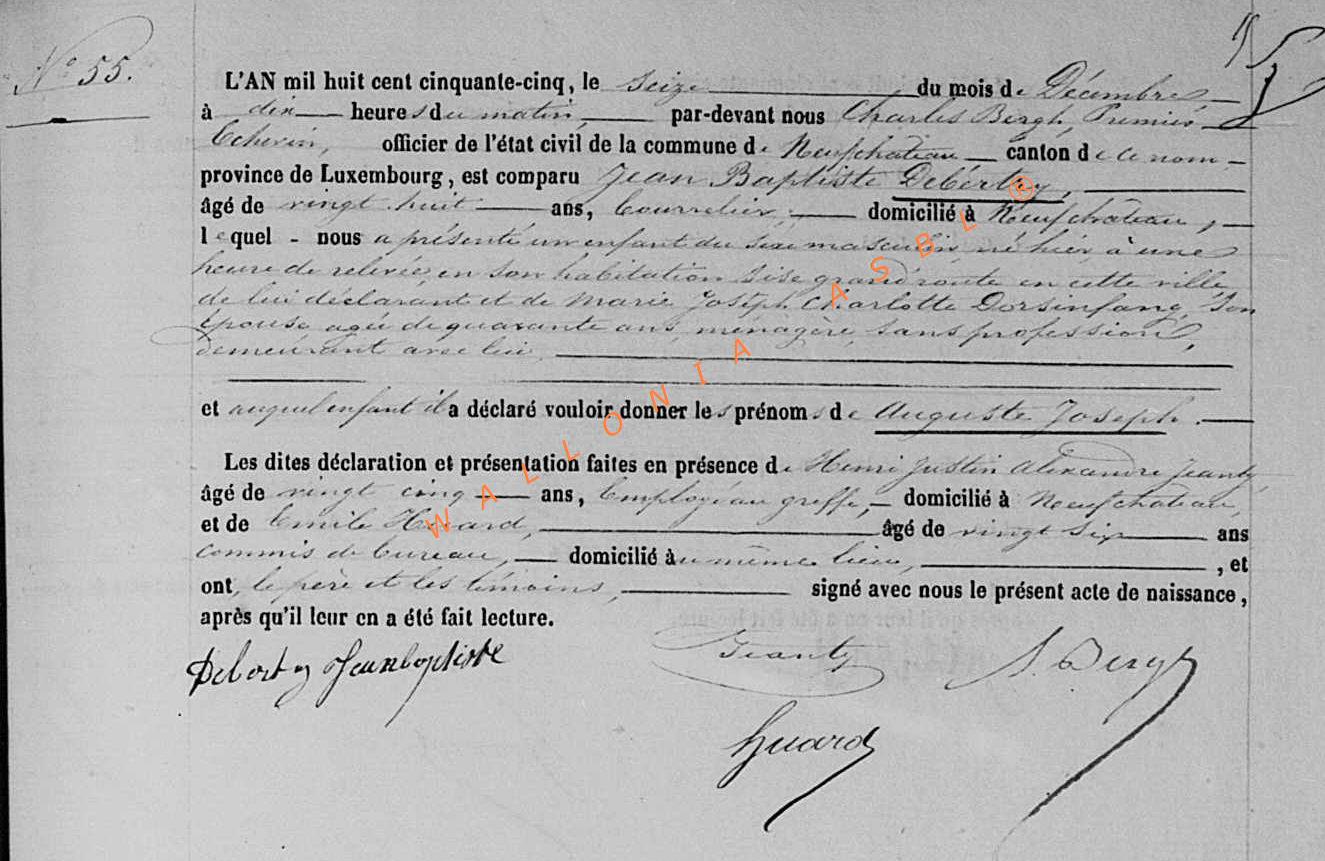 N° 55.
L'AN mil huit cent cinquante-cinq, le seize du mois de Décembre
à dix heures du matin, par-devant nous Charles Bergh, Premier
Echevin, officier de l'état civil de la commune de Neufchateau canton de ce nom
province de Luxembourg, est comparu Jean Baptiste Debertry,
âgé de vingt huit ans, bourrelier, domicilié à Neufchateau,
lequel nous a présenté un enfant du sexe masculin, né hier à une
heure de relevée, en son habitation sise grand'route en cette ville,
de lui déclarant et de Marie Joseph Charlotte Dorsinfang, son
épouse agée de quarante ans, ménagère, sans profession,
demeurant avec lui,
et auquel enfant il a déclaré vouloir donner les prénoms de Auguste Joseph.
Les dites déclaration et présentation faites en présence de Henri Justin Alexandre Jeanty
âgé de vingt cinq ans, Employé au greffe, domicilié à Neufchateau,
et de Emile Huard, âgé de vingt six ans
commis de bureau, domicilié au même lieu, , et
ont, le père et les témoins, signé avec nous le présent acte de naissance,
après qu'il leur en a été fait lecture.
Debertry Jeanbaptiste Jeanty Bergh
Huard
WALLONIA ASBL ®